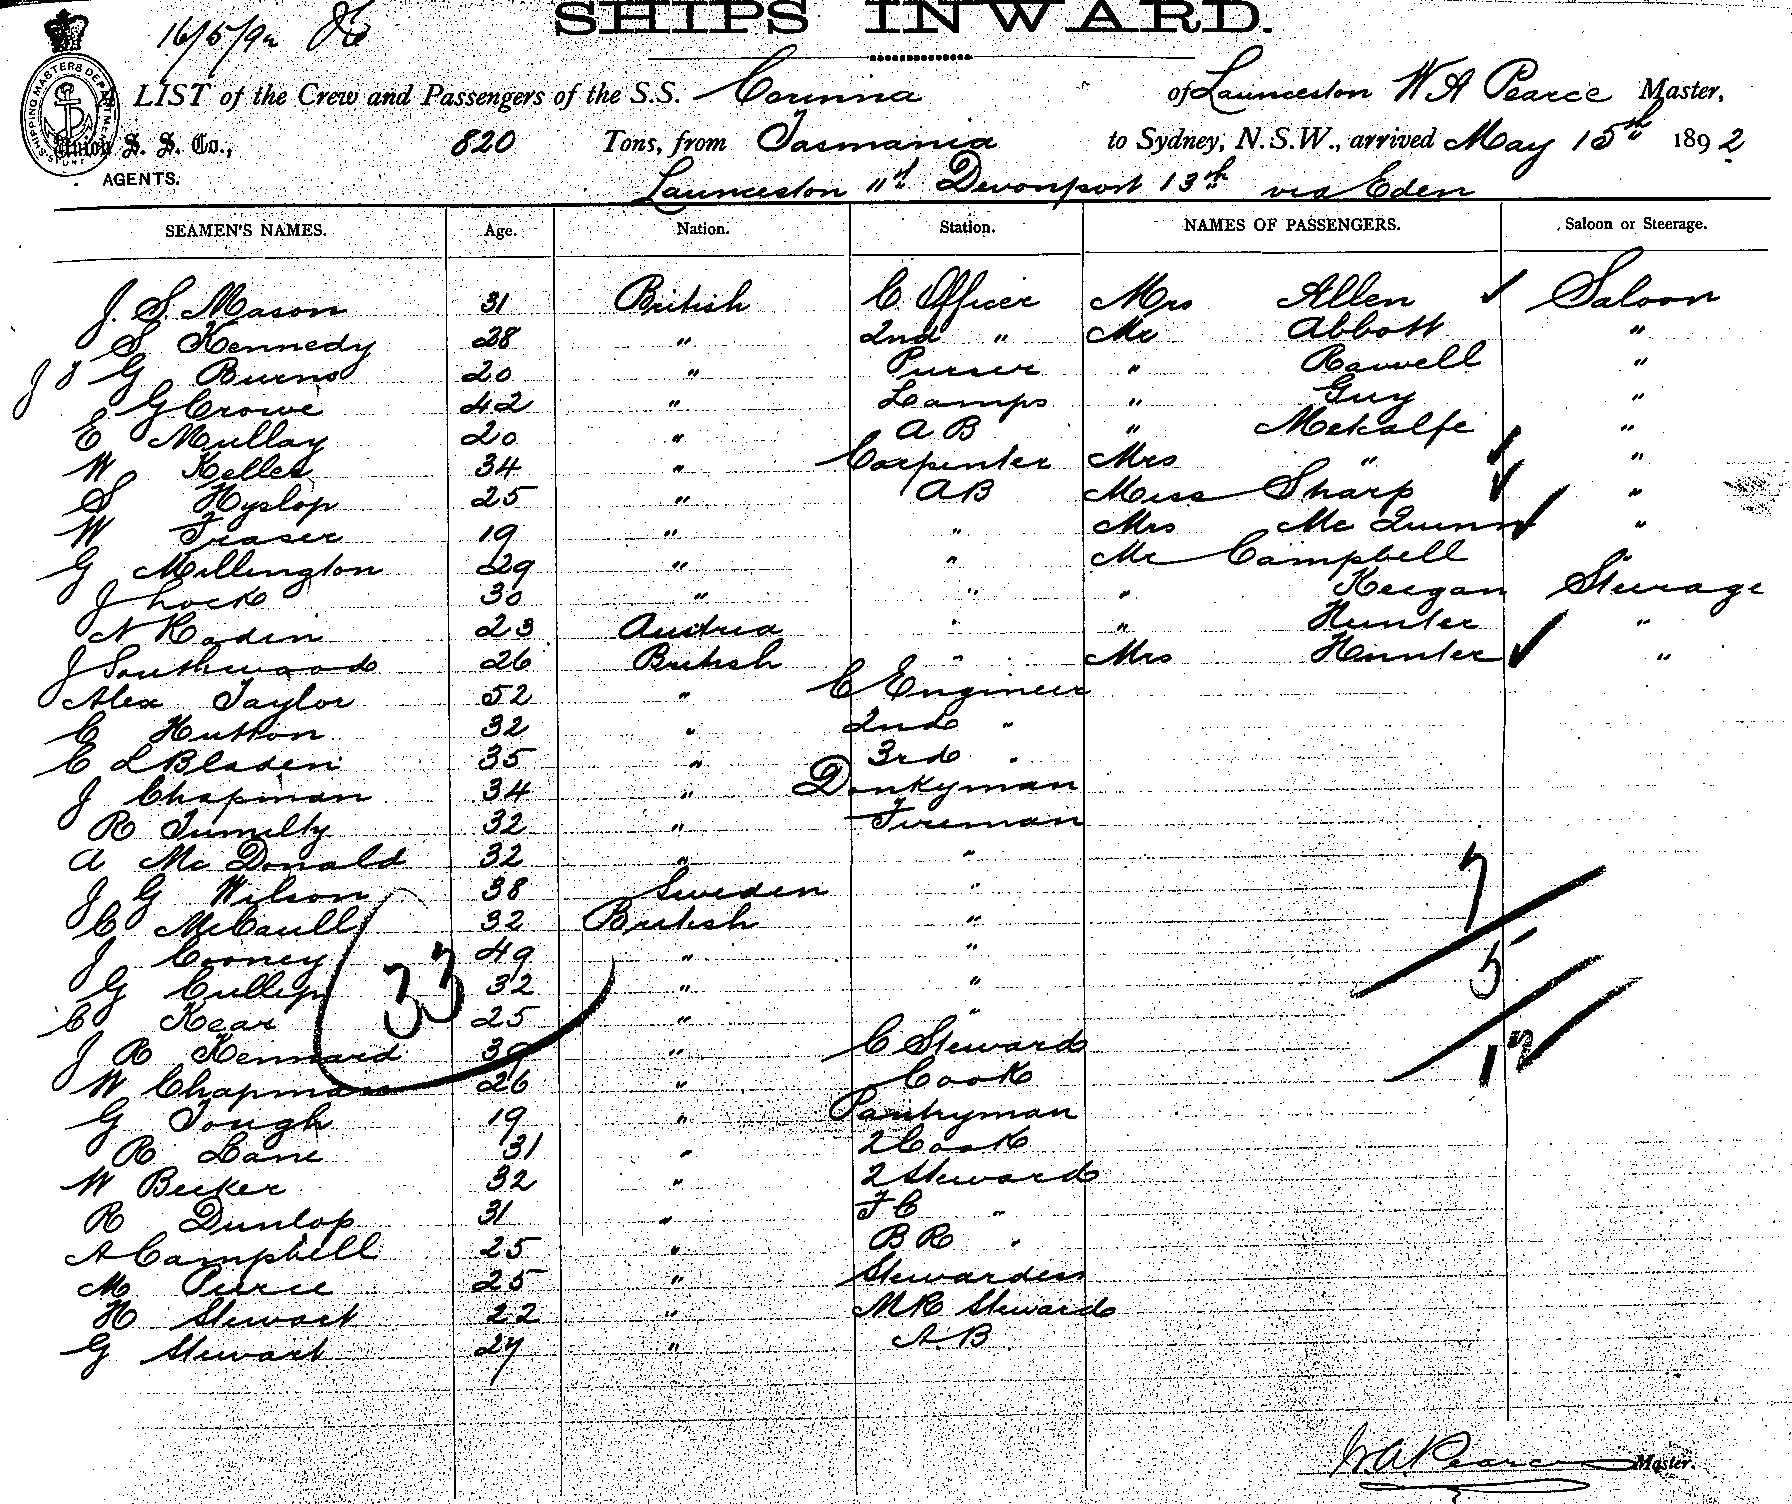 SHIPS INWARD.
16/5/92
LIST of the Crew and Passengers of the S.S. Corinna of Launceston W A Pearce Master,
Union S. S. Co., 820 Tons, from Tasmania to Sydney, N.S.W., arrived May 15th 1892
AGENTS.
Launceston 11th Devonport 13th via Eden
SEAMEN'S NAMES. Age. Nation. Station. NAMES OF PASSENGERS. Saloon or Steerage.
J. S. Mason 31 British C Officer Mrs Allen ✓ Saloon
S Kennedy 28 " 2nd " Mr Abbott "
G Burns 20 " Purser " "
G Crowe 42 " Lamps " Guy "
E Mullay 20 " A B " Metcalfe "
W Keller 34 " Carpenter Mrs " ✓ "
S Hyslop 25 " AB Miss Sharp ✓ "
W Fraser 19 " " Mrs Mc Quinn ✓ "
G Millington 29 " " Mr Campbell "
J Lock 30 " " " Keegan Steerage
N Radin 23 Austria " " Hunter "
J Southwood 26 British " Mrs Hunter ✓ "
Alex Taylor 52 " C Engineer
C Hutton 32 " 2nd "
E L Bladen 35 " 3rd "
J Chapman 34 " Donkyman
R Tumilty 32 " Fireman
A Mc Donald 32 " "
J G Wilson 38 Sweden "
C McCaull 32 British "
J Cooney 49 " "
G Cullep 32 " "
C Kear 25 " "
J R Kennard 39 " C Steward
W Chapman 26 " Cook
G Tough 19 " Pantryman
R Lane 31 " 2 Cook
W Becker 32 " 2 Steward
R Dunlop 31 " F C "
A Campbell 25 " B R "
M Pierce 25 " Stewardess
H Stewart 22 " M R Steward
G Stewart 27 " A.B
33
7
5
12
W A Pearce Master.